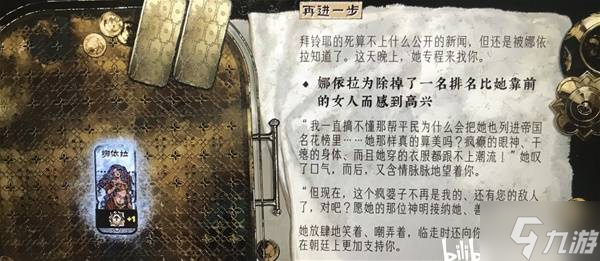 再进一步
拜铃耶的死算不上什么公开的新闻，但还是被娜依
拉知道了。这天晚上，她专程来找你。
◆ 娜依拉为除掉了一名排名比她靠前
的女人而感到高兴
“我一直搞不懂那帮平民为什么会把她也列进帝国
名花榜里……她那样真的算美吗？疯癫的眼神、干
瘪的身体、而且她穿的衣服都跟不上潮流！”她叹
了口气，而后，又含情脉脉地望着你。
“但现在，这个疯婆子不再是我的、还有您的敌人
了，对吧？愿她的那位神明接纳她、善
她放肆地笑着、嘲弄着，临走时还向你
在朝廷上更加支持你。
娜依拉
+1
bilib
九游